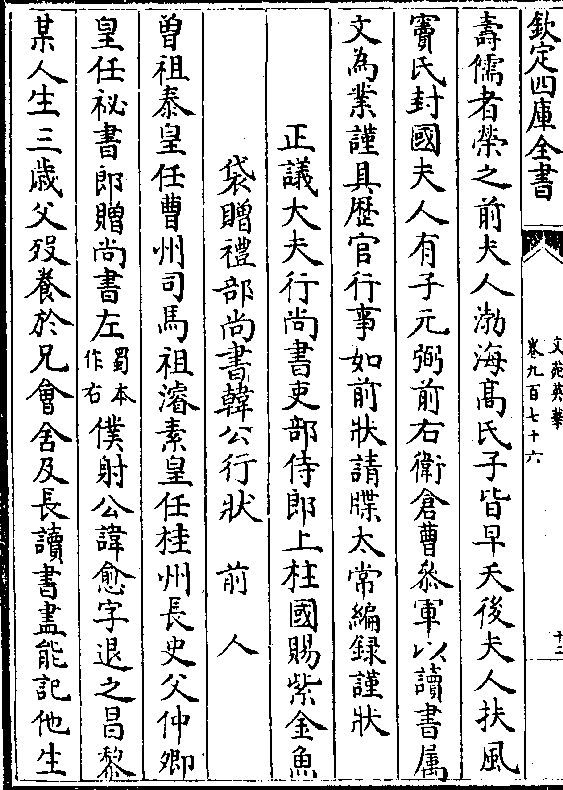 欽定四庫全書
文苑英華
卷九百七十六
十三
壽儒者榮之前夫人渤海髙氏子皆早夭後夫人扶風
竇氏封國夫人有子元弼前右衛倉曹叅軍以讀書属
文為業謹具歴官行事如前狀請牒太常編録謹狀
正議大夫行尚書吏部侍郎上柱國賜紫金魚
袋贈禮部尚書韓公行狀 前人
曽祖泰皇任曹州司馬祖濬素皇任桂州長史父仲卿
皇任祕書郎贈尚書左蜀本作右僕射公諱愈字退之昌黎
某人生三歳父殁養於兄會舍及長讀書盡能記他生